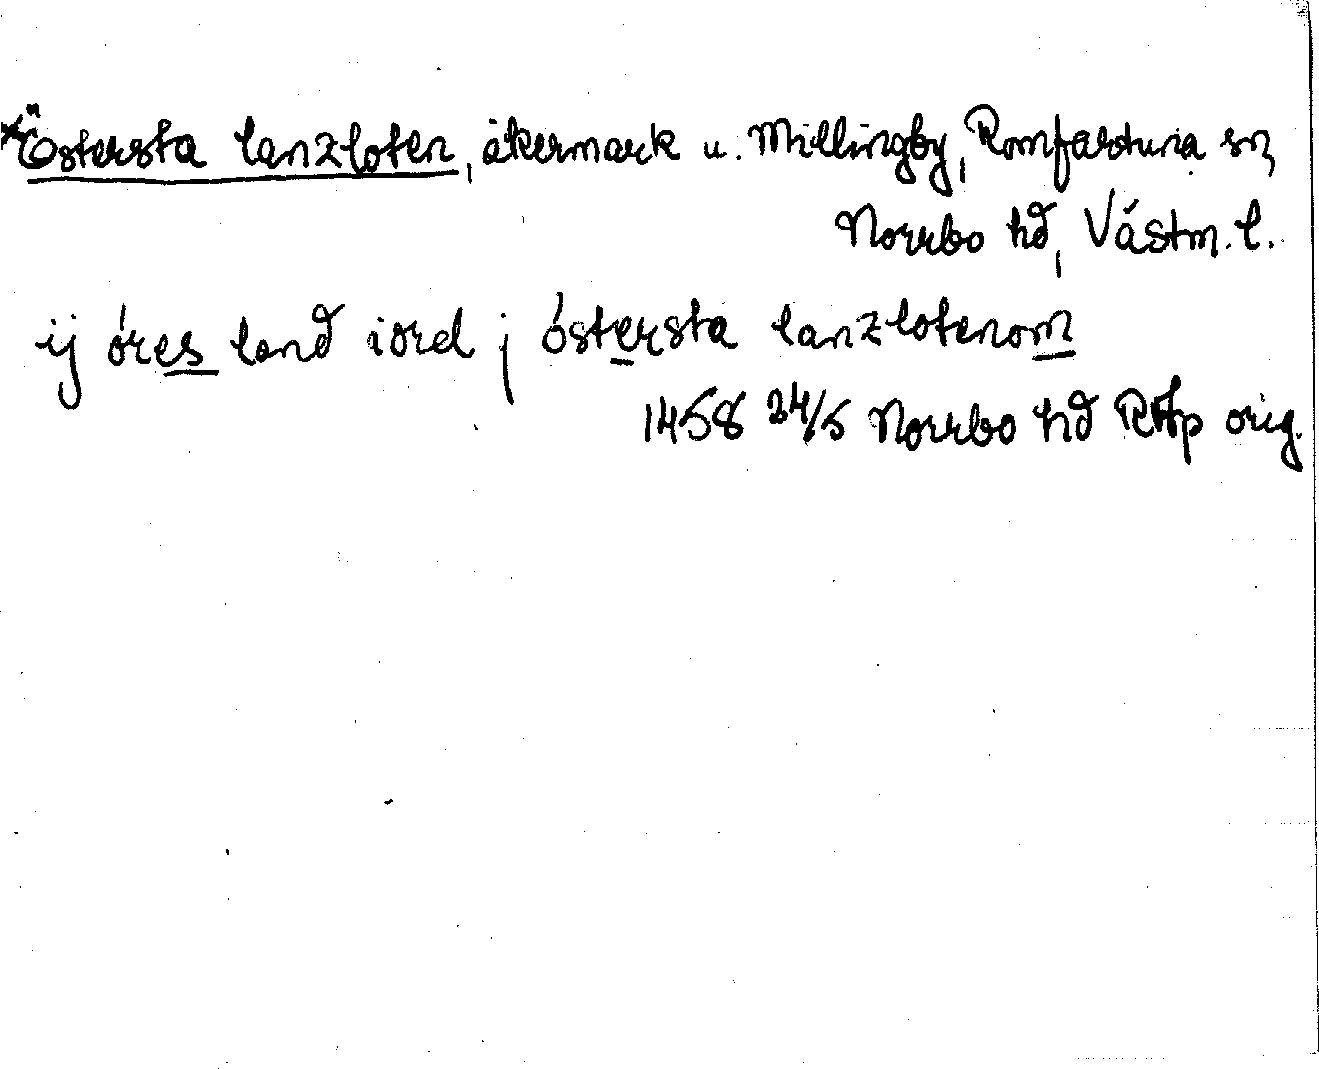 *Östersta lanzloten, åkermark u. Millingby, Romfartuna sn,
Norrbo hd, Västm. l.
ij öres land iord j östersta lanzlotenom
1458 24/5 Norrbo hd RAp orig.